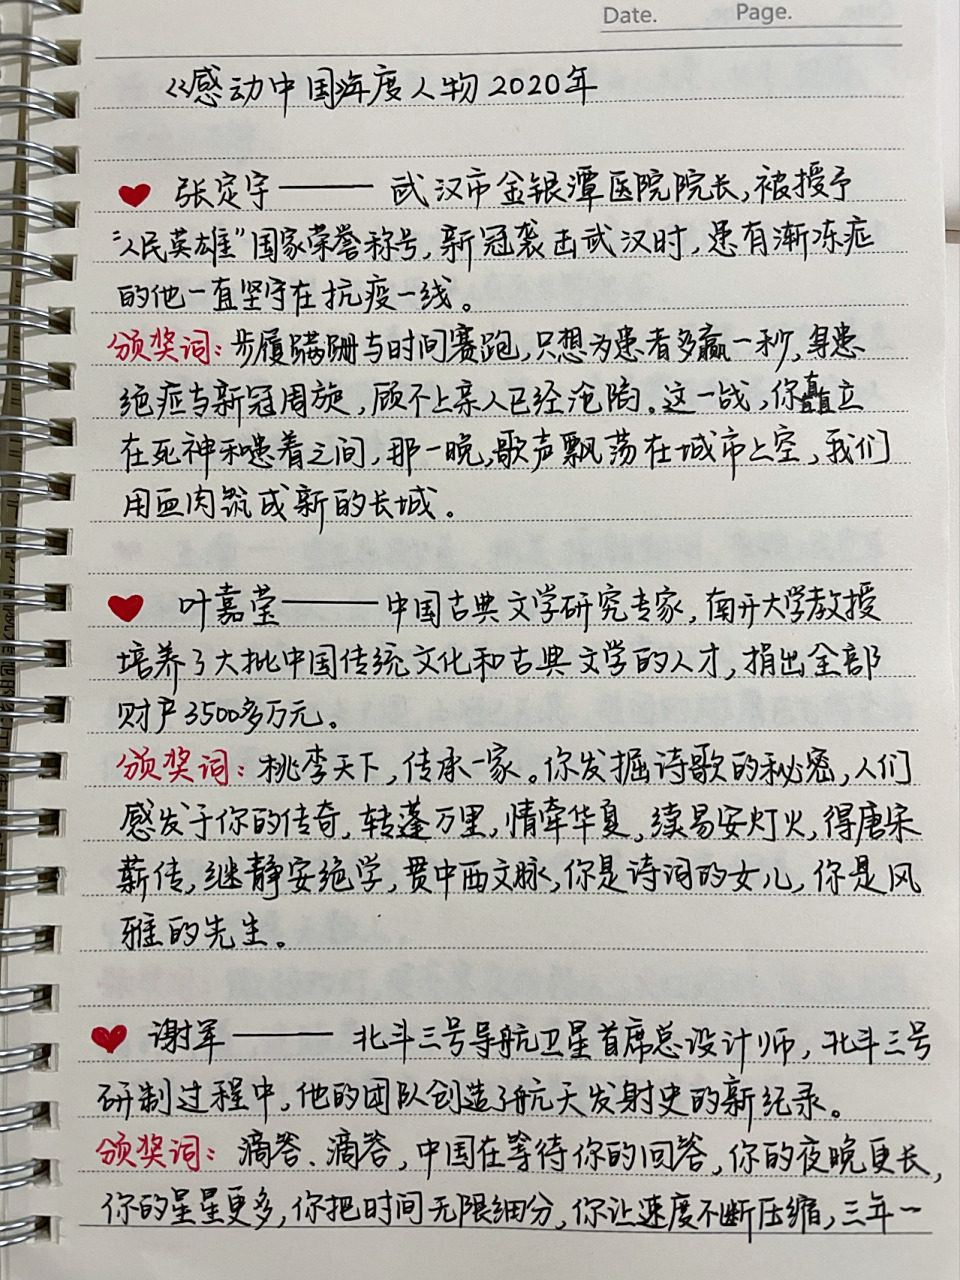 Date. Page.
《感动中国年度人物2020年
张定宇——武汉市金银潭医院院长,被授予
"人民英雄"国家荣誉称号,新冠袭击武汉时,患有渐冻症
的他一直坚守在抗疫一线。
颁奖词:步履蹒跚与时间赛跑,只想为患者多赢一秒,身患
绝症与新冠周旋,顾不上亲人已经沦陷。这一战,你矗立
在死神和患者之间,那一晚,歌声飘荡在城市上空,我们
用血肉筑成新的长城。
叶嘉莹——中国古典文学研究专家,南开大学教授
培养了大批中国传统文化和古典文学的人才,捐出全部
财产3500多万元。
颁奖词:桃李天下,传承一家。你发掘诗歌的秘密,人们
感发于你的传奇,转蓬万里,情牵华夏,续易安灯火,得唐宋
薪传,继静安绝学,贯中西文脉,你是诗词的女儿,你是风
雅的先生。
谢军——北斗三号导航卫星首席总设计师,北斗三号
研制过程中,他的团队创造了航天发射史的新纪录。
颁奖词:滴答、滴答,中国在等待你的回答,你的夜晚更长,
你的星星更多,你把时间无限细分,你让速度不断压缩,三年一